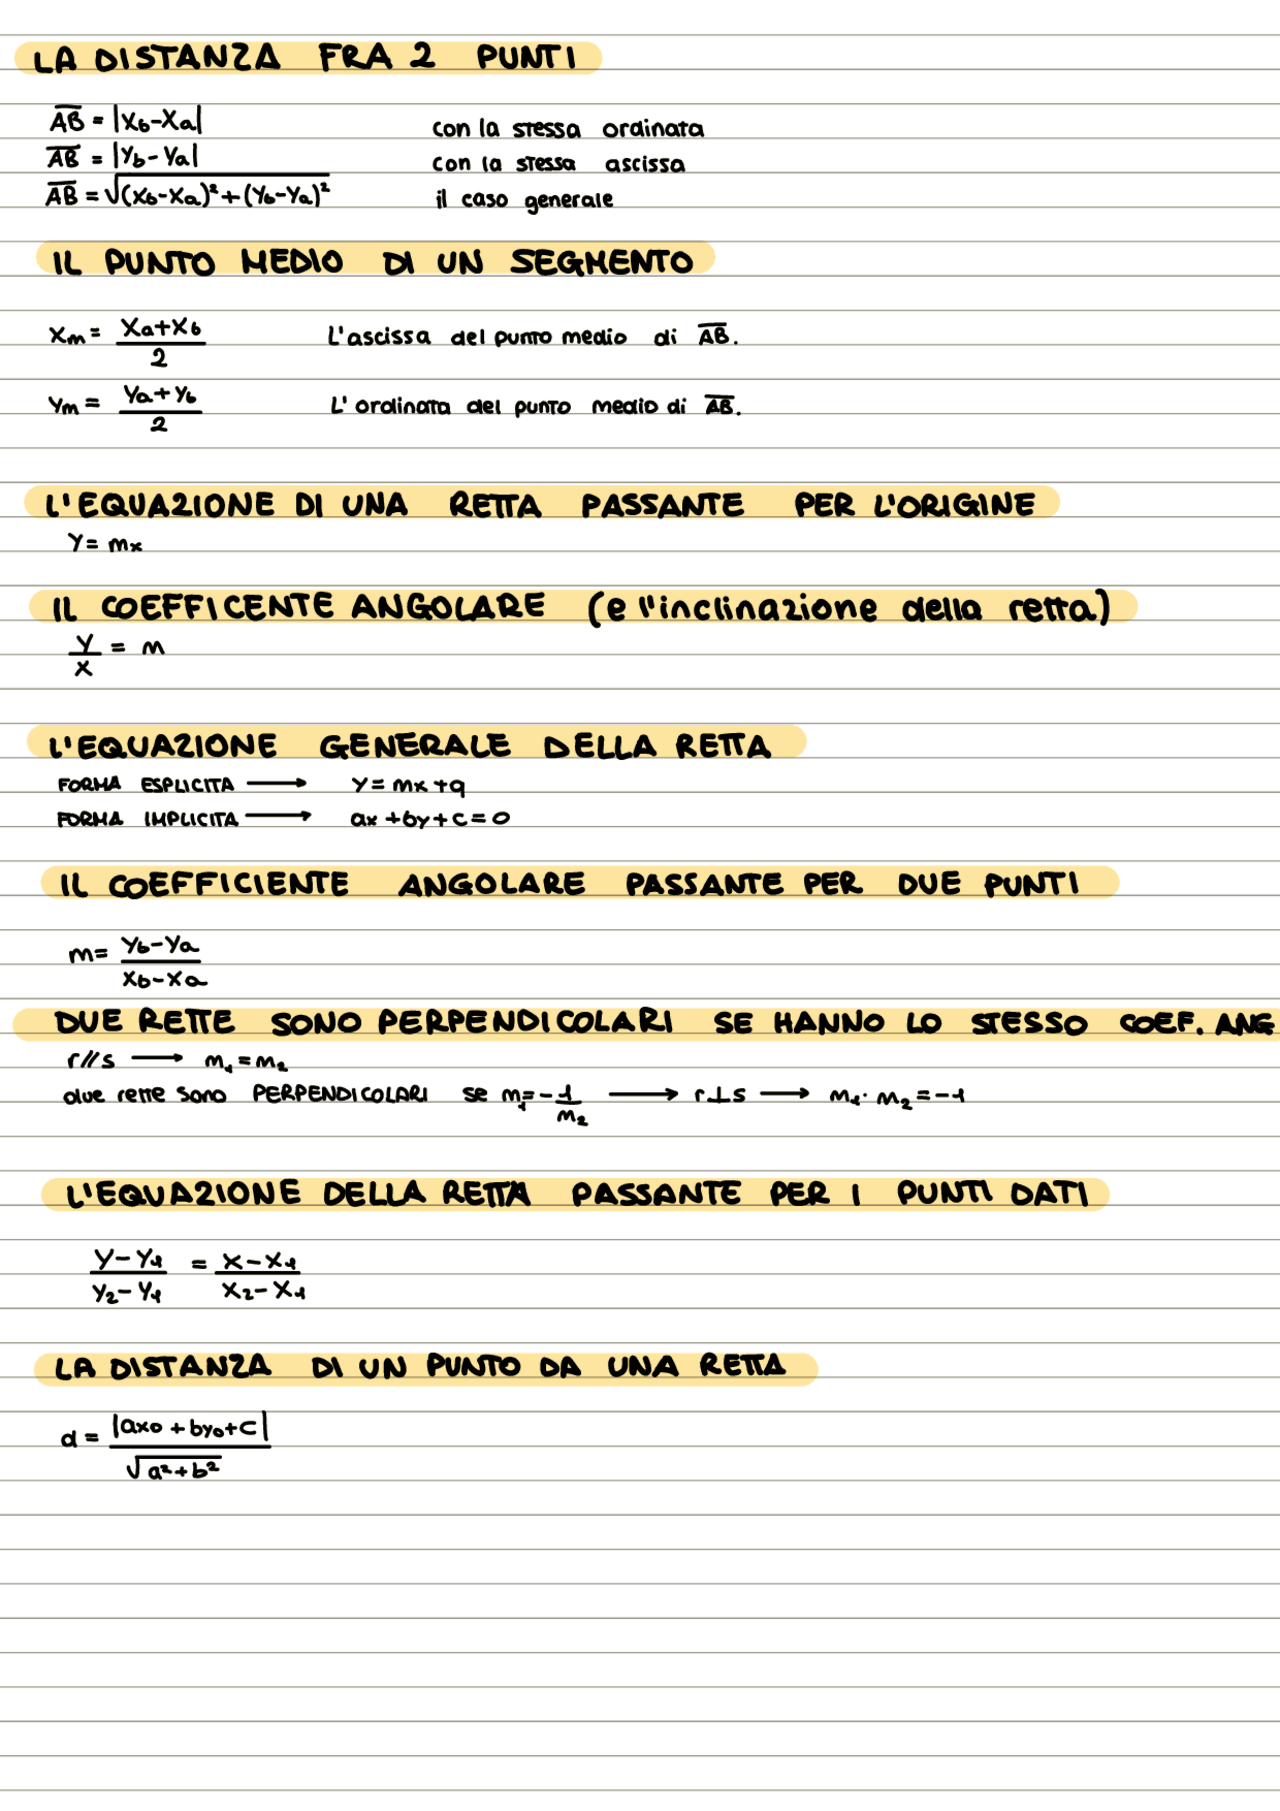 LA DISTANZA FRA 2 PUNTI
AB = |Xb-Xa| con la stessa ordinata
AB = |Yb-Ya| con la stessa ascissa
AB = √(Xb-Xa)²+(Yb-Ya)² il caso generale
IL PUNTO MEDIO DI UN SEGMENTO
Xm = Xa+Xb / 2 L'ascissa del punto medio di AB.
Ym = Ya+Yb / 2 L'ordinata del punto medio di AB.
L'EQUAZIONE DI UNA RETTA PASSANTE PER L'ORIGINE
Y = mx
IL COEFFICENTE ANGOLARE (e l'inclinazione della retta)
Y / X = m
L'EQUAZIONE GENERALE DELLA RETTA
FORMA ESPLICITA → Y = mx +q
FORMA IMPLICITA → ax +by+c=0
IL COEFFICIENTE ANGOLARE PASSANTE PER DUE PUNTI
m = Yb-Ya / Xb-Xa
DUE RETTE SONO PERPENDICOLARI SE HANNO LO STESSO COEF. ANG
r//s → m₁ = m₂
due rette sono PERPENDICOLARI se m₁=-1/m₂ → r⊥s → m₁· m₂=-1
L'EQUAZIONE DELLA RETTA PASSANTE PER I PUNTI DATI
Y-Y₁ / Y₂-Y₁ = X-X₁ / X₂-X₁
LA DISTANZA DI UN PUNTO DA UNA RETTA
d = |ax₀ + by₀+c| / √a²+b²